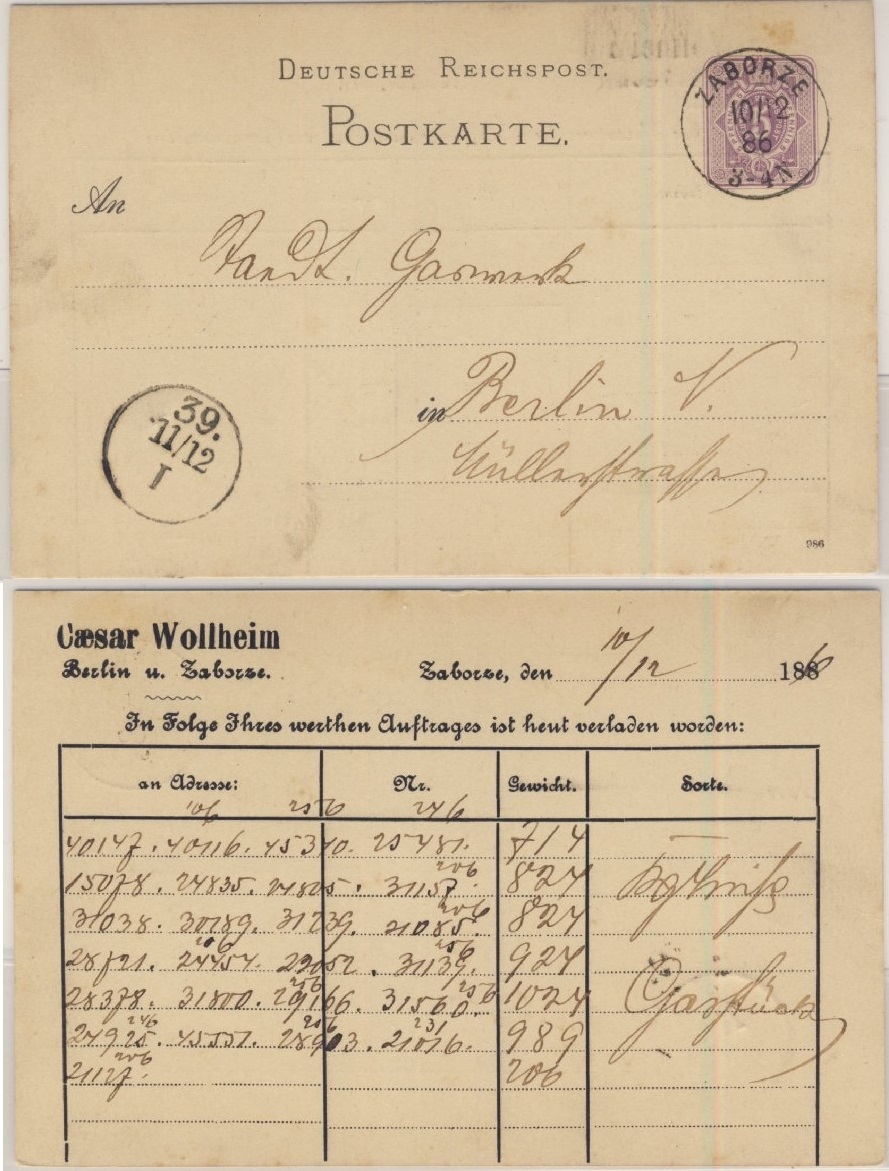 DEUTSCHE REICHSPOST.
POSTKARTE.
ZABORZE
10/12
86
3-4N
An
Staedt. Gaswerk
in Berlin N.
Müllerstrasse
39.
11/12
I
986
Cæsar Wollheim
Berlin u. Zaborze.
Zaborze, den 10/12 1886
In Folge Ihres werthen Auftrages ist heut verladen worden:
an Adresse: Nr. Gewicht. Sorte.
206 246
40147. 40116. 45310. 25481. 714 —
206
15078. 24835. 31157. 824
206
31038. 30189. 31239. 21085. 824
206 256
28721. 24454. 22052. 31139. 924
256 256
28378. 31800. 29166. 31560. 1024 Gasstück
246 256 231
24925. 45551. 28903. 21016. 989
206
21127. 206